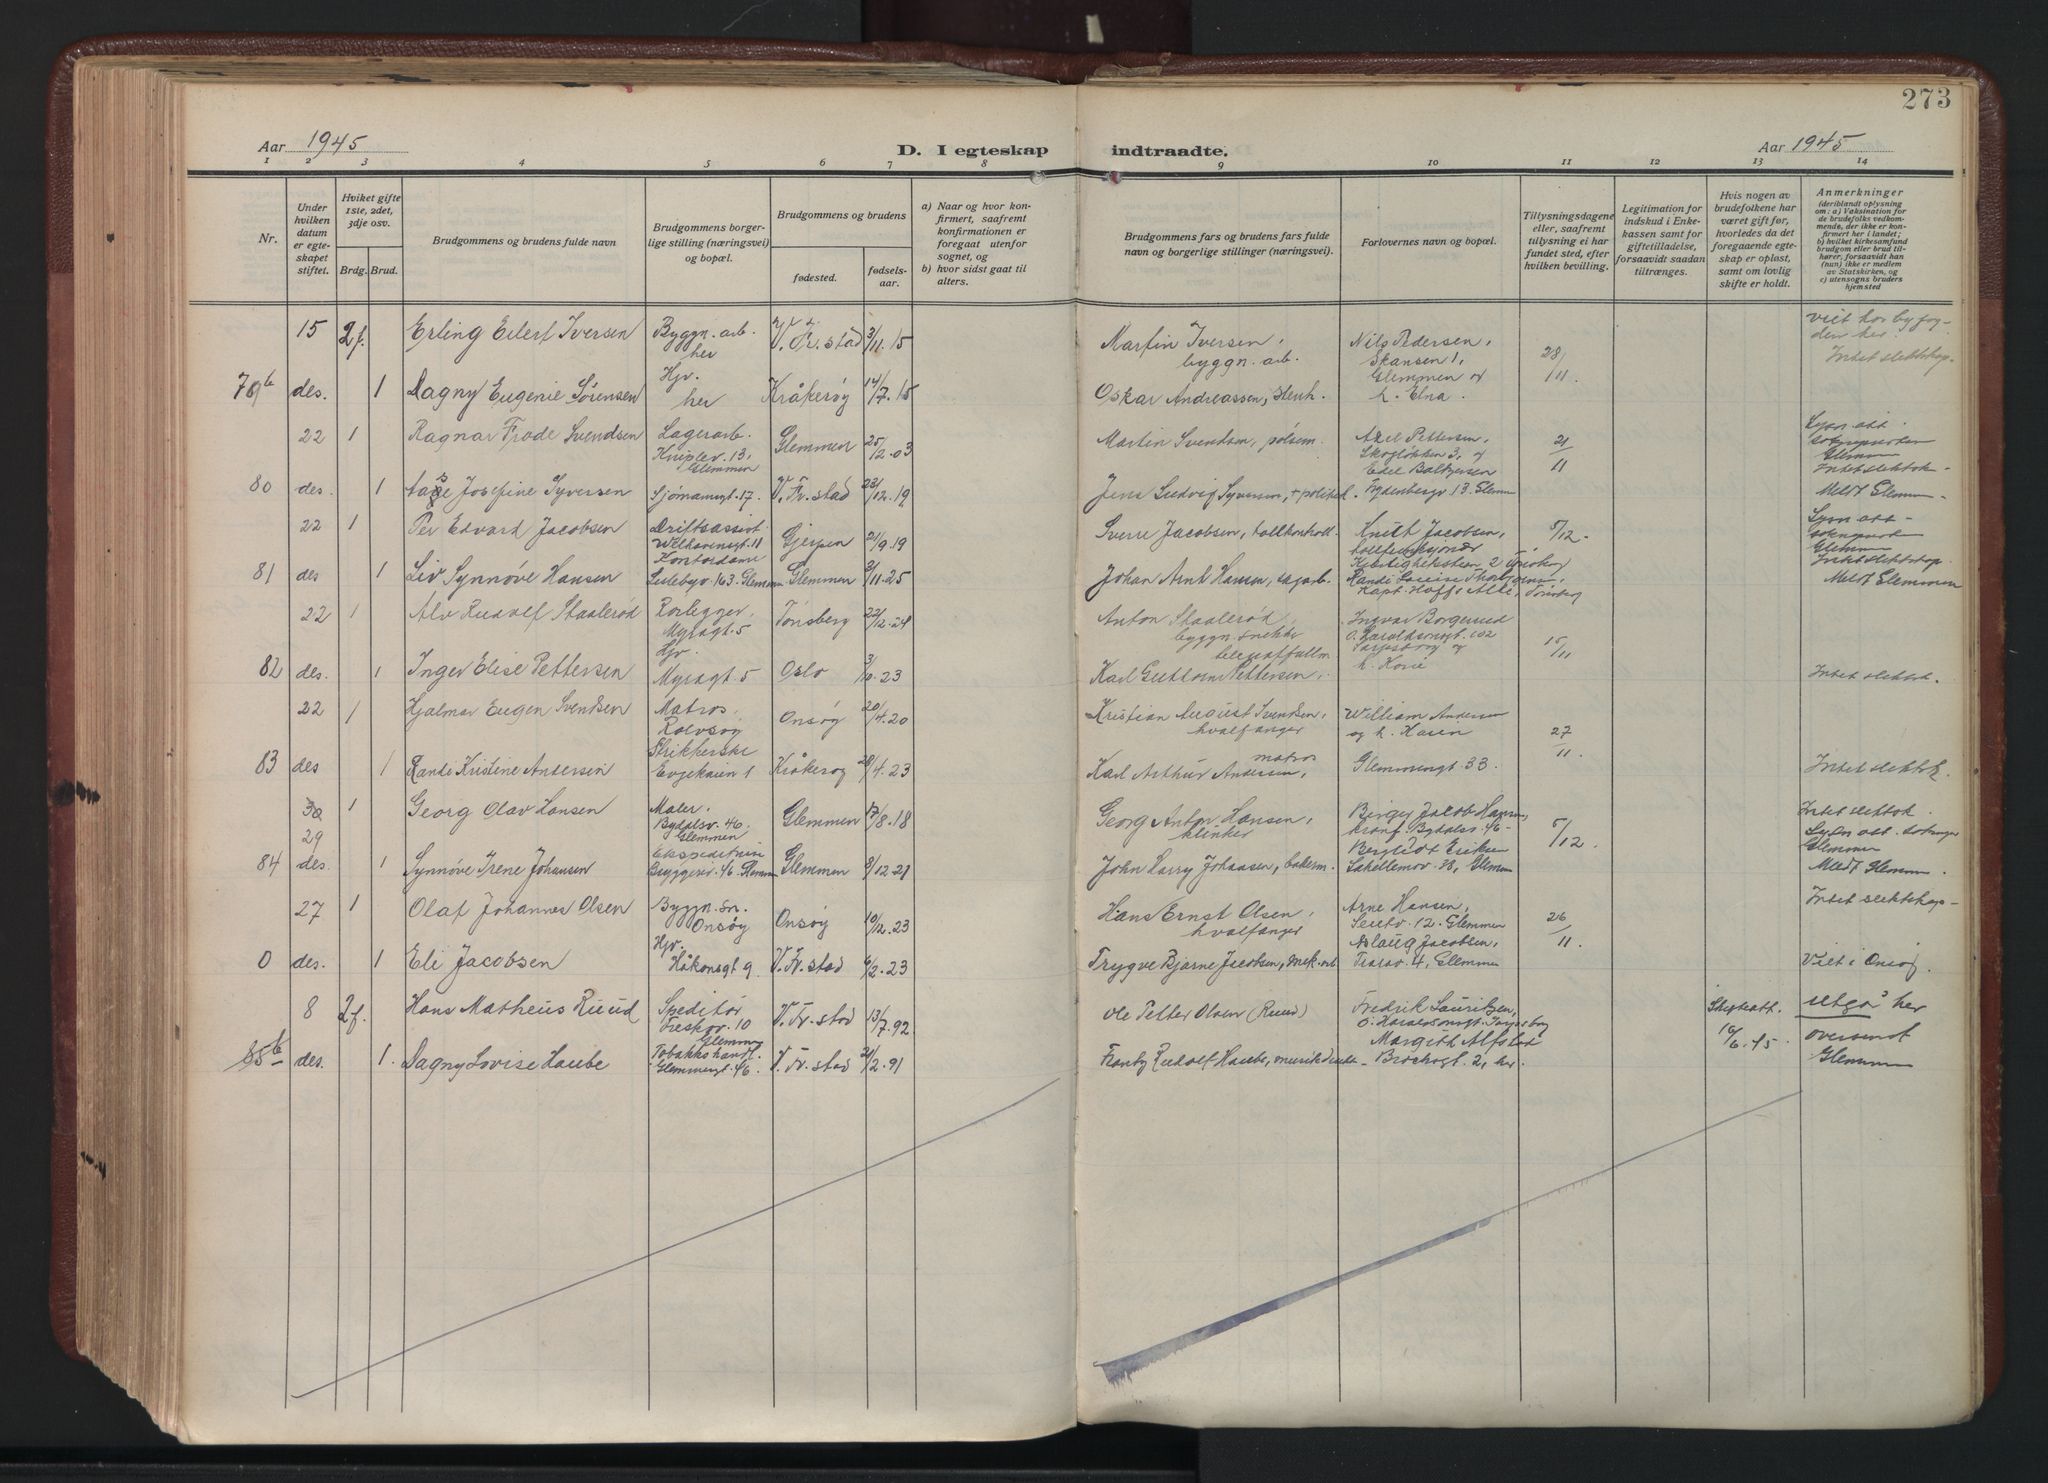 273
Aar 1945
D. I egteskap indtraadte.
Aar 1945
1 2 3 4 5 6 7 8 9 10 11 12 13 14
Nr.
Under hvilken datum er egteskapet stiftet.
Hviket gifte 1ste, 2det, 3dje osv.
Brdg. Brud.
Brudgommens og brudens fulde navn
Brudgommens borgerlige stilling (næringsvei) og bopæl.
Brudgommens og brudens
fødested.
fødselsaar.
a) Naar og hvor konfirmert, saafremt konfirmationen er foregaat utenfor sognet, og
b) hvor sidst gaat til alters.
Brudgommens fars og brudens fars fulde navn og borgerlige stillinger (næringsvei).
Forlovernes navn og bopæl.
Tillysningsdagene eller, saafremt tillysning ei har fundet sted, efter hvilken bevilling.
Legitimation for indskud i Enkekassen samt for giftetilladelse, forsaavidt saadan tiltrænges.
Hvis nogen av brudefolkene har været gift før, hvorledes da det foregaaende egteskap er opløst, samt om lovlig skifte er holdt.
Anmerkninger
(deriblandt oplysning om: a) Vaksination for de brudefolks vedkommende, der ikke er konfirmert her i landet; b) hvilket kirkesamfund brudgom eller brud tilhører, forsaavidt han (hun) ikke er medlem av Statskirken, og c) utensogns bruders hjemsted
15 2 f. Erling Eilert Iversen Byggn. arb. her V. Fr. stad 3/11.15 Martin Iversen, byggn. arb. Nils Pedersen, Skansen 1, Glemmen og 28/11. viet hos byfogden her. Intet slektskap.
79b des. 1 Dagny Eugenie Sørensen Hjv. her Kråkerøy 14/7.15 Oskar Andreassen, stenh. h. Elna.
22 1 Ragnar Frode Svendsen Lagerarb. Kniplev. 13, Glemmen Glemmen 25/2.03 Martin Svendsen, pølsem. Axel Pettersen, Skogløkken 3, og Edel Baltzersen 21/11 Lysn. att. sognepresten Glemmen Intet slektsk.
80 des. 1 Aase Josefine Syversen Sjømannsgt. 17. V. Fr. stad 23/12.19 Jens Ludvig Syversen, + politik. Fydenbergv 13. Glemm Meldt Glemmen
22 1 Per Edvard Jacobsen Driftsassist. Welhavensgt. 11 Gjerpen 21/9.19 Sverre Jacobsen, tollkontroll. Knut Jacobsen, tollfullmektig Kjærlighetsstien 2 Tønsberg 5/12. Lysn. att. sogneprest Glemmen Intet slektskap.
81 des 1 Liv Synnøve Hansen Kontordame Lislebyv. 163. Glemmen Glemmen 3/11.25 Johan Arnt Hansen, sagarb. Randi Louise Thorbjørnsen, Kapt. Hoffs Allé, Tønsberg Meldt Glemmen
22 1 Alv Rudolf Staalerød Rørlegger. Myragt. 5 Tønsberg 22/12.24 Anton Staalerød byggn. snekker Ingvar Borgerud O. Haraldsonsgt. 102 Sarpsborg og 15/11
82 des. 1 Inger Elise Pettersen Hjv. Myragt. 5 Oslo 3/6.23 telegraffullm. Karl Guttorm Pettersen, h. Kone Intet slektsk.
22 1 Hjalmar Eugen Svendsen Matros, Rolvsøy Onsøy 20/4.20 Kristian August Svendsen, hvalfanger William Andersen og h. Karen 27/11.
83 des 1 Randi Kristine Andersen Strikkerske Evjekaien 1 Kråkerøy 28/4.23 Karl Arthur Andersen, matros Glemmengt 33. Intet slektsk.
30 29 1 Georg Olav Hansen Maler. Bydalsv. 46. Glemmen Glemmen 17/8.18 Georg Anton Hansen, klinker Birger Jacob Hansen, kranf. Bydalsv. 46 - 5/12. Intet slektsk. Lysn. att. sokneprest Glemmen
84 des. 1 Synnøve Irene Johansen Ekspeditrise Bryggeriv. 46. Glemm Glemmen 8/12.21 John Harry Johansen, bakerm. Bergljot Eriksen Lakkellemov. 38, Glemm Meldt Glemmen.
27 1 Olaf Johannes Olsen Byggn. sn. Onsøy Onsøy 10/12.23 Hans Ernst Olsen, hvalfanger Arne Hansen, Seutv. 12. Glemmen 26/11. Intet slektskap
0 des. 1 Eli Jacobsen Hjv. Håkonsgt 9. V. Fr. stad 6/2.23 Trygve Bjarne Jacobsen, mek. arb Aslaug Jacobsen, Trarav. 4, Glemmen Viet i Onsøy.
8 2 f. Hans Matheus Ruud Speditør Treskov. 10 Glemmen V. Fr. stad 13/7.92 Ole Petter Olsen (Ruud) Fredrik Lauritzen, O. Haraldsonsgt. Sarpsborg Skifteatt. 16/6.45. utgå her
85b des. 1. Dagny Lovise Haube Tobakkshandl. Glemmengt. 46. V. Fr. stad 21/2.91 Frantz Rudolf Haube, musikdir. Margith Alfstad Brochsgt. 2, her. oversendt Glemmen